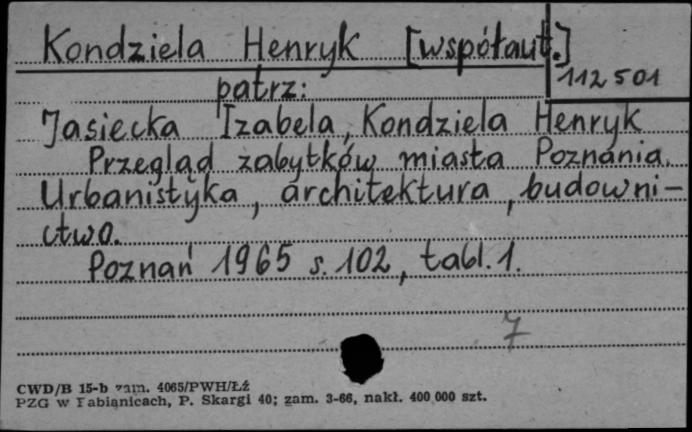 Kondziela Henryk [współaut.]
112501
patrz:
Jasiecka Izabela, Kondziela Henryk
Przegląd zabytków miasta Poznania.
Urbanistyka, architektura, budowni-
ctwo.
Poznań 1965 s. 102, tabl. 1.
7
CWD/B 15-b zam. 4065/PWH/Łź
PZG w Pabianicach, P. Skargi 40; zam. 3-66, nakł. 400 000 szt.